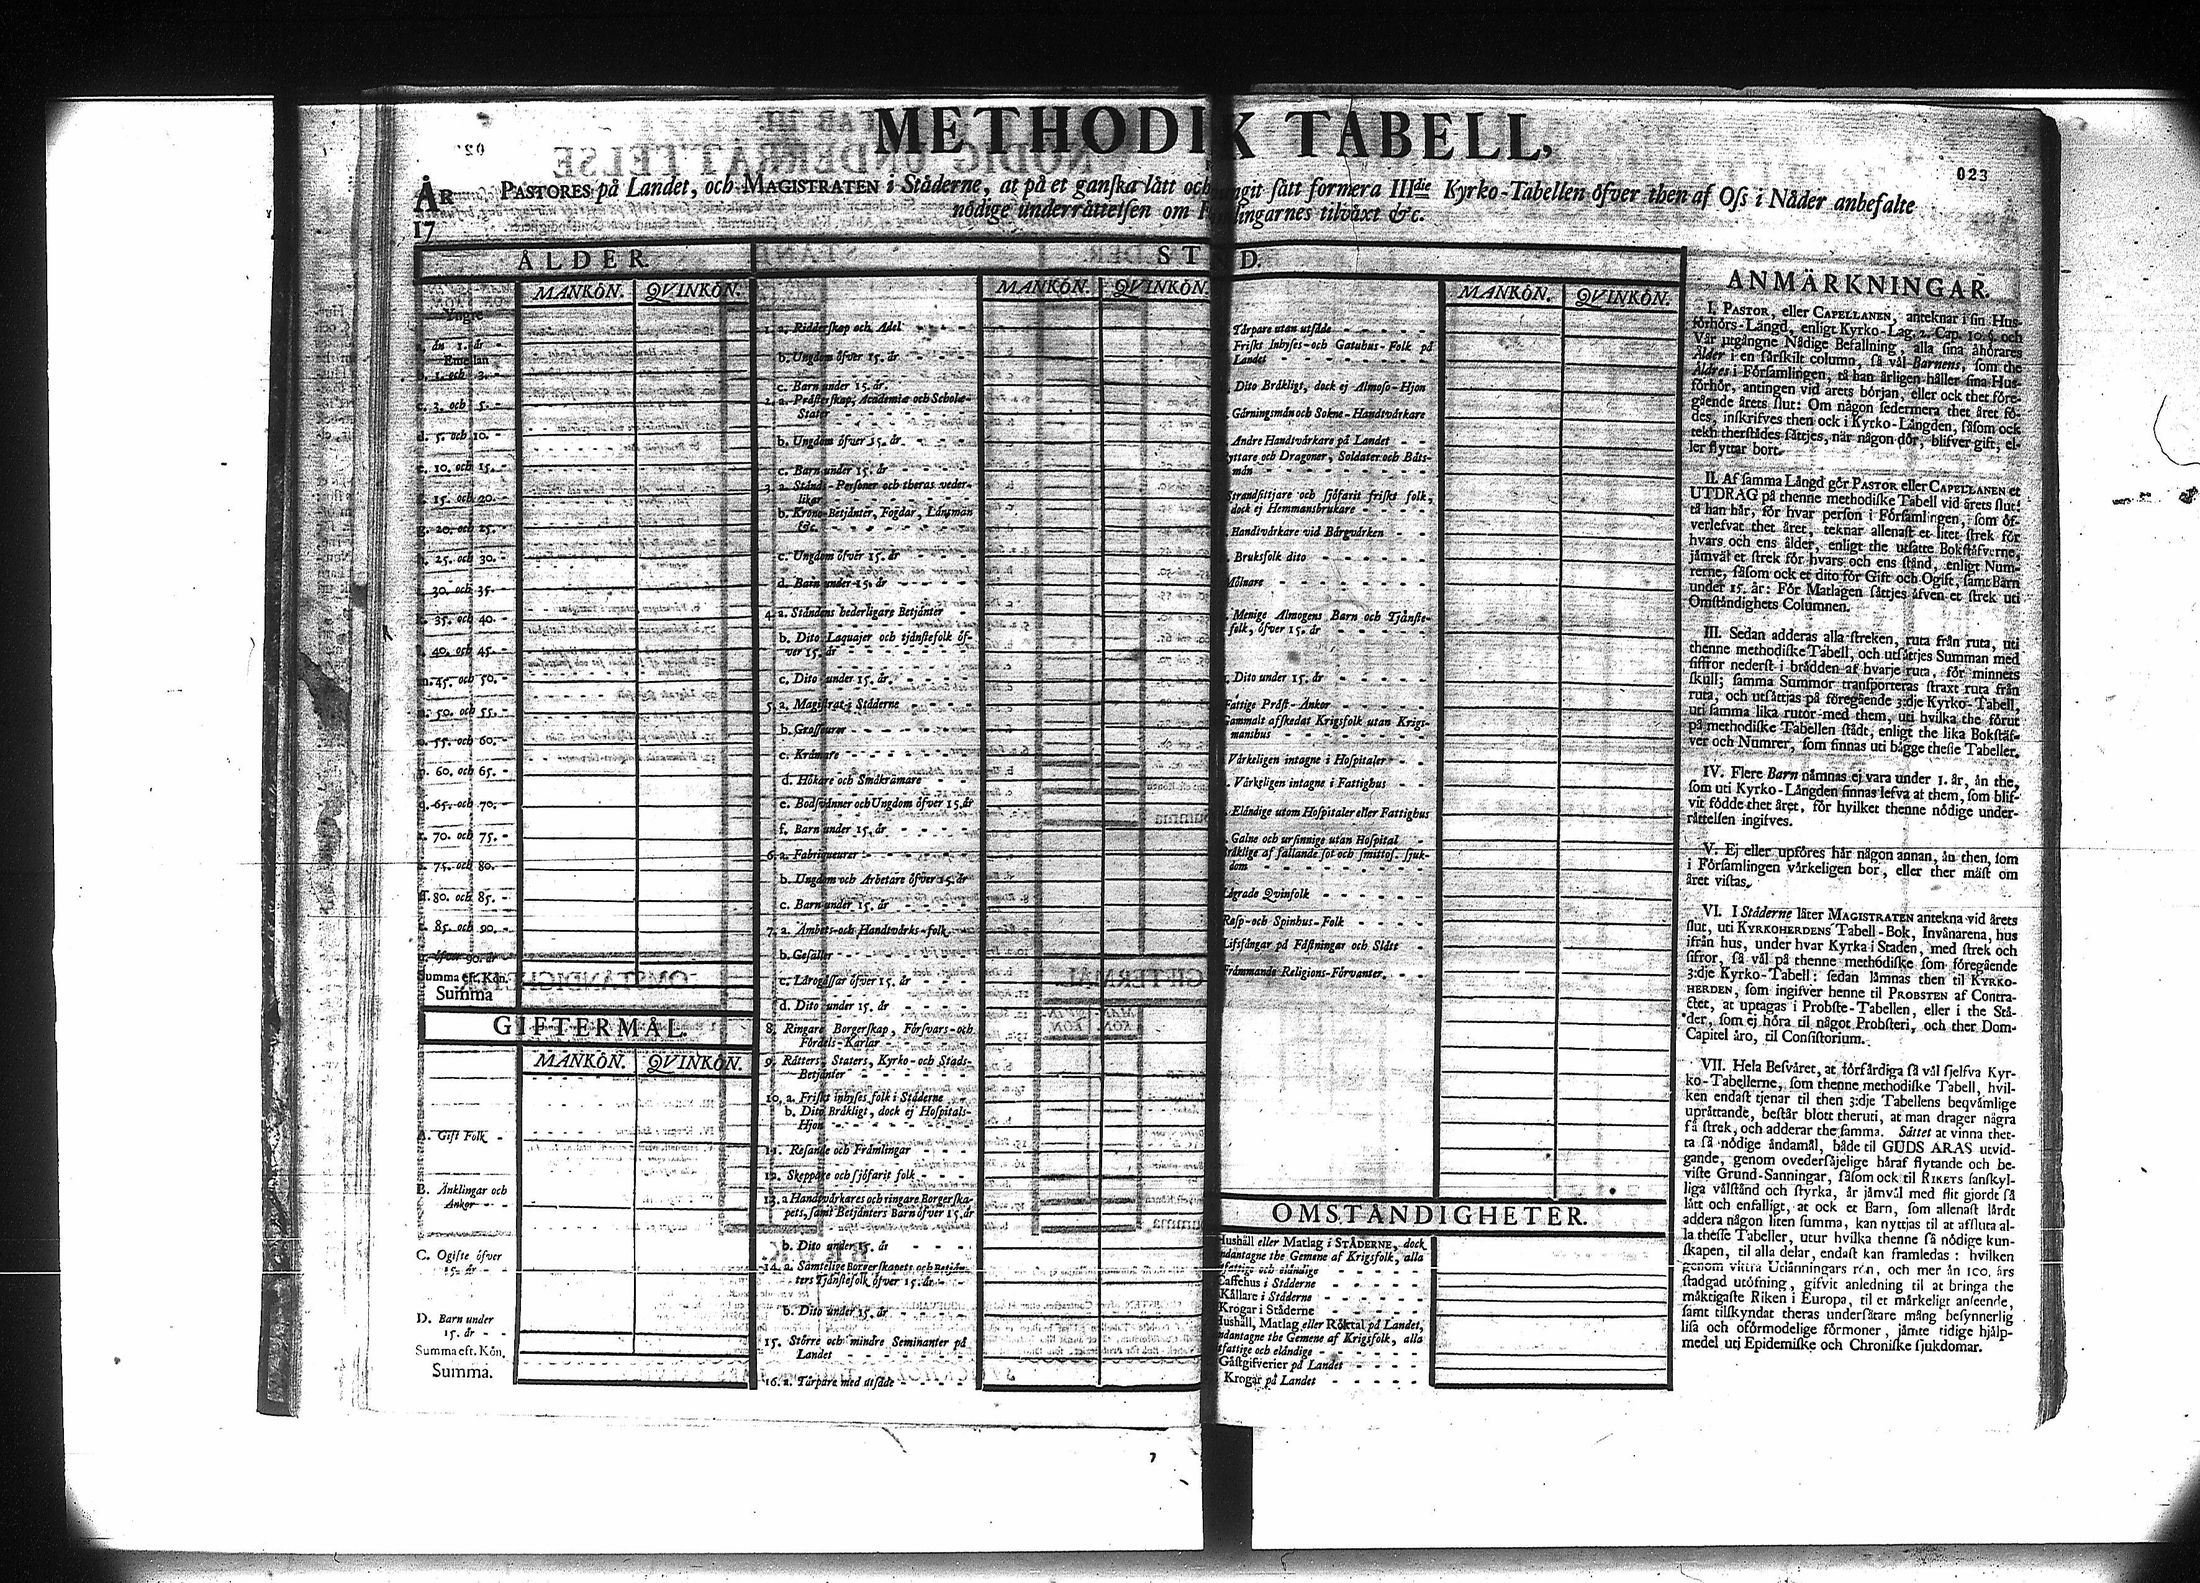 METHODIK TABELL,
023
ÅR PASTORES på Landet, och MAGISTRATEN i Ståderne, at på et ganska lått och ngit sått formera IIIdie Kyrko-Tabellen ôfver then af Ofs i Nåder anbefalte
17
nôdige underråttelsen om lingarnes tilvåxt &c.
ÅLDER.
MANKÔN. QVINKÔN.
Yngre
ån 1. år -
Emellan
b. 1. och 3.
c. 3. och 5. -
d. 5. och 10. -
e. 10. och 15. -
f. 15. och 20. -
g. 20. och 25. -
h. 25. och 30. -
30. och 35. -
35. och 40. -
40. och 45. -
m. 45. och 50. -
n. 50. och 55. -
o. 55. och 60. -
p. 60. och 65. -
q. 65. och 70. -
r. 70. och 75. -
s. 75. och 80. -
ff. 80. och 85. -
t. 85. och 90. -
u. ôfver 90. år -
Summa eft. Kôn.
Summa
GIFTERMÅL.
MANKÔN. QVINKÔN.
A. Gift Folk -
B. Änklingar och
Ånkor - -
C. Ogifte ôfver
15. år - -
D. Barn under
15. år - -
Summa eft. Kôn.
Summa.
ST D.
MANKÔN. QVINKÔN.
1. a. Ridderskap och Adel - - -
b. Ungdom ôfver 15. år - - -
c. Barn under 15. år.
2. a. Pråsterskap, Academiæ och Scholæ-
Stater - - - - -
b. Ungdom ôfver 15. år - - -
c. Barn under 15. år - - - -
3. a. Stånds-Personer och theras veder-
likar - - - - - -
b. Krono-Betjånter, Fogdar, Lånsmån
&c. - - - - - -
c. Ungdom ôfver 15. år - - -
d. Barn under 15. år - - - -
4. a. Ståndens hederligare Betjånter -
b. Dito Laquajer och tjånstefolk ôf-
ver 15. år - - - - -
c. Dito under 15. år. - - - -
5. a. Magistrat i Ståderne - - - -
b. Grosseurer - - - - -
c. Kråmare - - - - - -
d. Hôkare och Småkråmare - - -
e. Bodsvånner och Ungdom ôfver 15. år
f. Barn under 15. år - - - -
6. a. Fabriqueurer - - - - -
b. Ungdom och Arbetare ôfver 15. år
c. Barn under 15. år - - - -
7. a. Åmbets-och Handtvårks-folk - -
b. Gesåller - - - - - -
c. Lårogåssar ôfver 15. år - - -
d. Dito under 15. år - - - -
8. Ringare Borgerskap, Fôrsvars-och
Fôrdels-Karlar - - - -
9. Råtters, Staters, Kyrko-och Stads-
Betjånter - - - - - -
10. a. Friskt inhyses folk i Ståderne - -
b. Dito Bråkligt, dock ej Hospitals-
Hjon - - - - - -
11. Resande och Fråmlingar - - -
12. Skeppare och sjôfarit folk - - -
13. a Handtvårkares och ringare Borgerska-
pets, samt Betjånters Barn ôfver 15. år
b. Dito under 15. år - - -
14. a. Såmtelige Borgerskapets och Betjån-
ters Tjånstefolk ôfver 15. år - -
b. Dito under 15. år - - - -
15. Stôrre och mindre Seminanter på
Landet - - - - - -
16. a. Tårpare med utsåde - - - -
MANKÔN. QVINKÔN.
Tårpare utan utsåde - - - - -
Friskt Inhyses-och Gatuhus-Folk på
Landet - - - - - -
Dito Bråkligt, dock ej Almoso-Hjon
Gårningsmån och Sokne-Handtvårkare
Andre Handtvårkare på Landet - -
yttare och Dragoner, Soldater och Båts-
mån - - - - - -
Strandsittjare och sjôfarit friskt folk,
dock ej Hemmansbrukare - - - -
Handtvårkare vid Bårgvårken - -
Bruksfolk dito - - - - -
Môlnare - - - - - -
Menige Almogens Barn och Tjånste-
folk, ôfver 15. år - - - - -
Dito under 15. år - - - - -
Fattige Pråst-Ånkor - - - -
Gammalt afskedat Krigsfolk utan Krigs-
manshus - - - - - -
Vårkeligen intagne i Hospitaler - -
Vårkeligen intagne i Fattighus - -
Elåndige utom Hospitaler eller Fattighus
Galne och ursinnige utan Hospital -
Bråklige af fallande sot och smittos. sjuk-
dom - - - - - -
Lågrade Qvinfolk - - - - -
Rasp-och Spinhus-Folk - - - -
Lifsfångar på Fåstningar och Slått - -
Fråmmande Religions-Fôrvanter. - -
OMSTÅNDIGHETER.
Hushåll eller Matlag i STÅDERNE, dock
undantagne the Gemene af Krigsfolk, alla
utfattige och elåndige
Caffehus i Ståderne - - - -
Kållare i Ståderne - - - -
Krogar i Ståderne - - - -
Hushåll, Matlag eller Rôktal på Landet,
undantagne the Gemene af Krigsfolk, alla
utfattige och elåndige - - - -
Gåstgifverier på Landet - - - -
Krogar på Landet - - - - -
ANMÄRKNINGAR.
I. PASTOR, eller CAPELLANEN, anteknar i sin Hus-
fôrhôrs-Långd, enligt Kyrko-Lag. 2. Cap. 10. §. och
Vår utgångne Nådige Befallning, alla sina åhôrares
Ålder i en sårskilt column, så vål Barnens, som the
Åldres i Fôrsamlingen, tå han årligen håller sina Hus-
fôrhôr, antingen vid årets bôrjan, eller ock thet fôre-
gående årets slut: Om någon sedermera thet året fô-
des, inskrifves then ock i Kyrko-Långden, såsom ock
tekn therstådes såttjes, når någon dôr, blifver gift, el-
ler flyttar bort.
II. Af samma Långd gôr PASTOR eller CAPELLANEN et
UTDRAG på thenne methodiske Tabell vid årets slut:
tå han hår, fôr hvar person i Fôrsamlingen, som ôf-
verlefvat thet året, teknar allenast et litet strek fôr
hvars och ens ålder, enligt the utsatte Bokståfverne,
jåmvål et strek fôr hvars och ens stånd, enligt Num-
rerne, såsom ock et dito fôr Gift och Ogift, samt Barn
under 15. år: Fôr Matlagen såttjes åfven et strek uti
Omståndighets Columnen.
III. Sedan adderas alla streken, ruta från ruta, uti
thenne methodiske Tabell, och utsåttjes Summan med
siffror nederst i brådden af hvarje ruta, fôr minnets
skull; samma Summor transporteras straxt ruta från
ruta, och utsåttjas på fôregående 3:dje Kyrko-Tabell,
uti samma lika rutor med them, uti hvilka the fôrut
på methodiske Tabellen stådt, enligt the lika Bokståf-
ver och Numrer, som finnas uti bågge thesse Tabeller.
IV. Flere Barn nåmnas ej vara under 1. år, ån the,
som uti Kyrko-Långden finnas lefva at them, som blif-
vit fôdde thet året, fôr hvilket thenne nôdige under-
råttelsen ingifves.
V. Ej eller upfôres hår någon annan, ån then, som
i Fôrsamlingen vårkeligen bor, eller ther måst om
året vistas.
VI. I Ståderne låter MAGISTRATEN antekna vid årets
slut, uti KYRKOHERDENS Tabell-Bok, Invånarena, hus
ifrån hus, under hvar Kyrka i Staden, med strek och
sifror, så vål på thenne methôdiske som fôregående
3:dje Kyrko-Tabell: sedan låmnas then til KYRKO-
HERDEN, som ingifver henne til PROBSTEN af Contra-
ctet, at uptagas i Probste-Tabellen, eller i the Stå-
der, som ej hôra til något Probsteri, och ther Dom-
Capitel åro, til Consistorium.
VII. Hela Besvåret, at fôrfårdiga så vål sjelfva Kyr-
ko-Tabellerne, som thenne methodiske Tabell, hvil-
ken endast tjenar til then 3:dje Tabellens beqvåmlige
upråttande, beståt blott theruti, at man drager några
få strek, och adderar the samma. Såttet at vinna thet-
ta så nôdige åndamål, både til GUDS ARAS utvid-
gande, genom ovedersåjelige håraf flytande och be-
viste Grund-Sanningar, såsom ock til RIKETS sanskyl-
liga vålstånd och styrka, år jåmvål med flit gjordt så
lått och enfalligt, at ock et Barn, som allenast lårdt
addera någon liten summa, kan nyttjas til at afsluta al-
la thesse Tabeller, utur hvilka thenne så nôdige kun-
skapen, til alla delar, endast kan framledas: hvilken
genom vittra Utlånningars rôn, och mer ån 100. års
stadgad utôfning, gifvit anledning til at bringa the
måktigaste Riken i Europa, til et mårkeligt anseende,
samt tilskyndat theras undersåtare mång besynnerlig
lisa och ofôrmodelige fôrmoner, jåmte tidige hjålp-
medel uti Epidemiske och Chroniske sjukdomar.